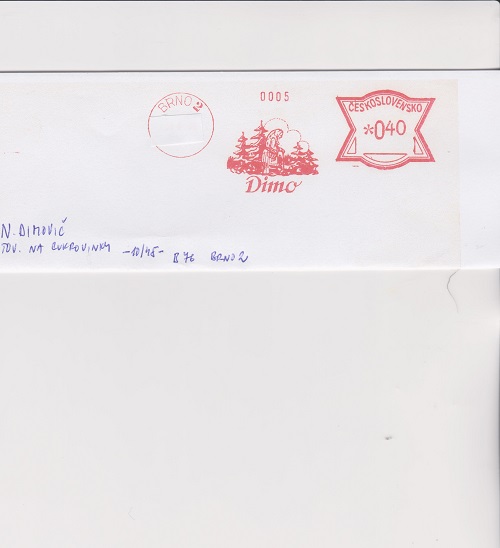 BRNO 2
0005
ČESKOSLOVENSKO
*040
Dimo
N. DIMOVIČ
TOV. NA CUKROVINKY -10/45- B 76 BRNO 2